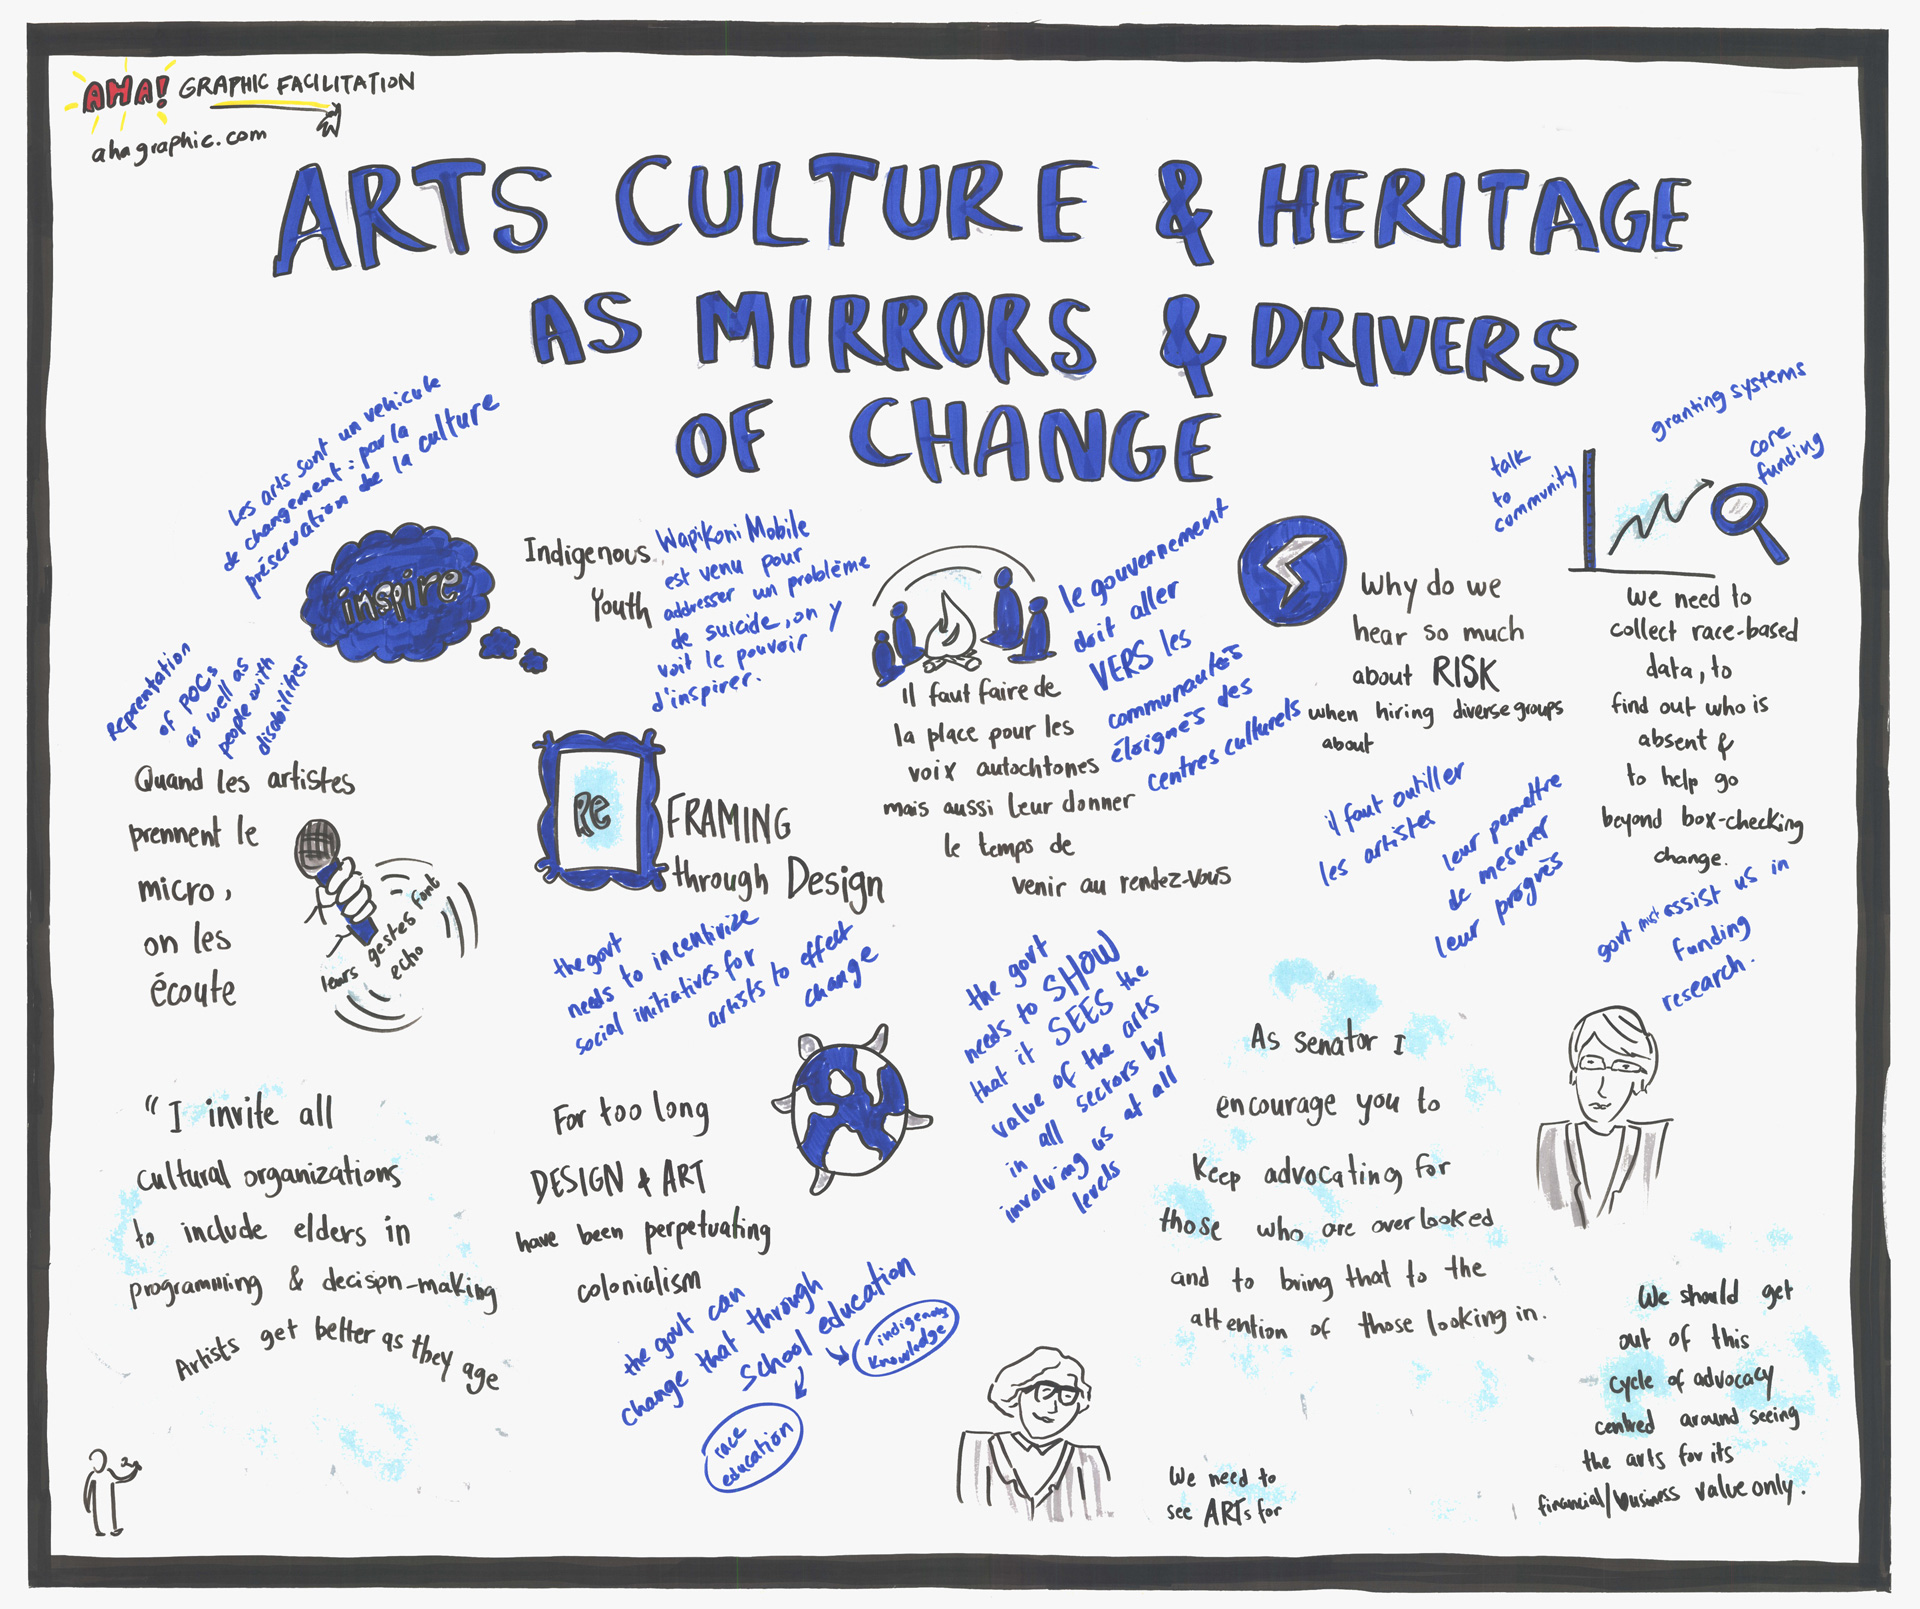 AHA! GRAPHIC FACILITATION
ahagraphic.com
ARTS CULTURE & HERITAGE
AS MIRRORS & DRIVERS
OF CHANGE
Les arts sont un vehicule
de changement : par la
préservation de la culture
inspire
Reprentation
of POCs
as well as
people with
disabilities
Quand les artistes
prennent le
micro,
on les
écoute
leurs gestes font
echo
Indigenous
Youth
Wapikoni Mobile
est venu pour
addresser un problème
de suicide, on y
voit le pouvoir
d'inspirer.
Re
FRAMING
through Design
the govt
needs to incentivize
social initiatives for
artists to effect
change
il faut faire de
la place pour les
voix autochtones
mais aussi leur donner
le temps de
venir au rendez-vous
le gouvernement
doit aller
VERS les
communautés
éloignés des
centres culturels
Why do we
hear so much
about RISK
when hiring diverse groups
about
il faut outiller
les artistes
leur permettre
de mesurer
leur progrès
talk
to
community
granting systems
core
funding
we need to
collect race-based
data, to
find out who is
absent &
to help go
beyond box-checking
change.
govt must assist us in
funding
research.
"I invite all
cultural organizations
to include elders in
programming & decision-making
Artists get better as they age
For too long
DESIGN & ART
have been perpetuating
colonialism
the govt can
change that through
school education
indigenous
knowledge
race
education
the govt
needs to SHOW
that it SEES the
value of the arts
in all sectors by
involving us at all
levels
As senator I
encourage you to
keep advocating for
those who are overlooked
and to bring that to the
attention of those looking in.
We need to
see ARTs for
We should get
out of this
cycle of advocacy
centred around seeing
the arts for its
financial/business value only.